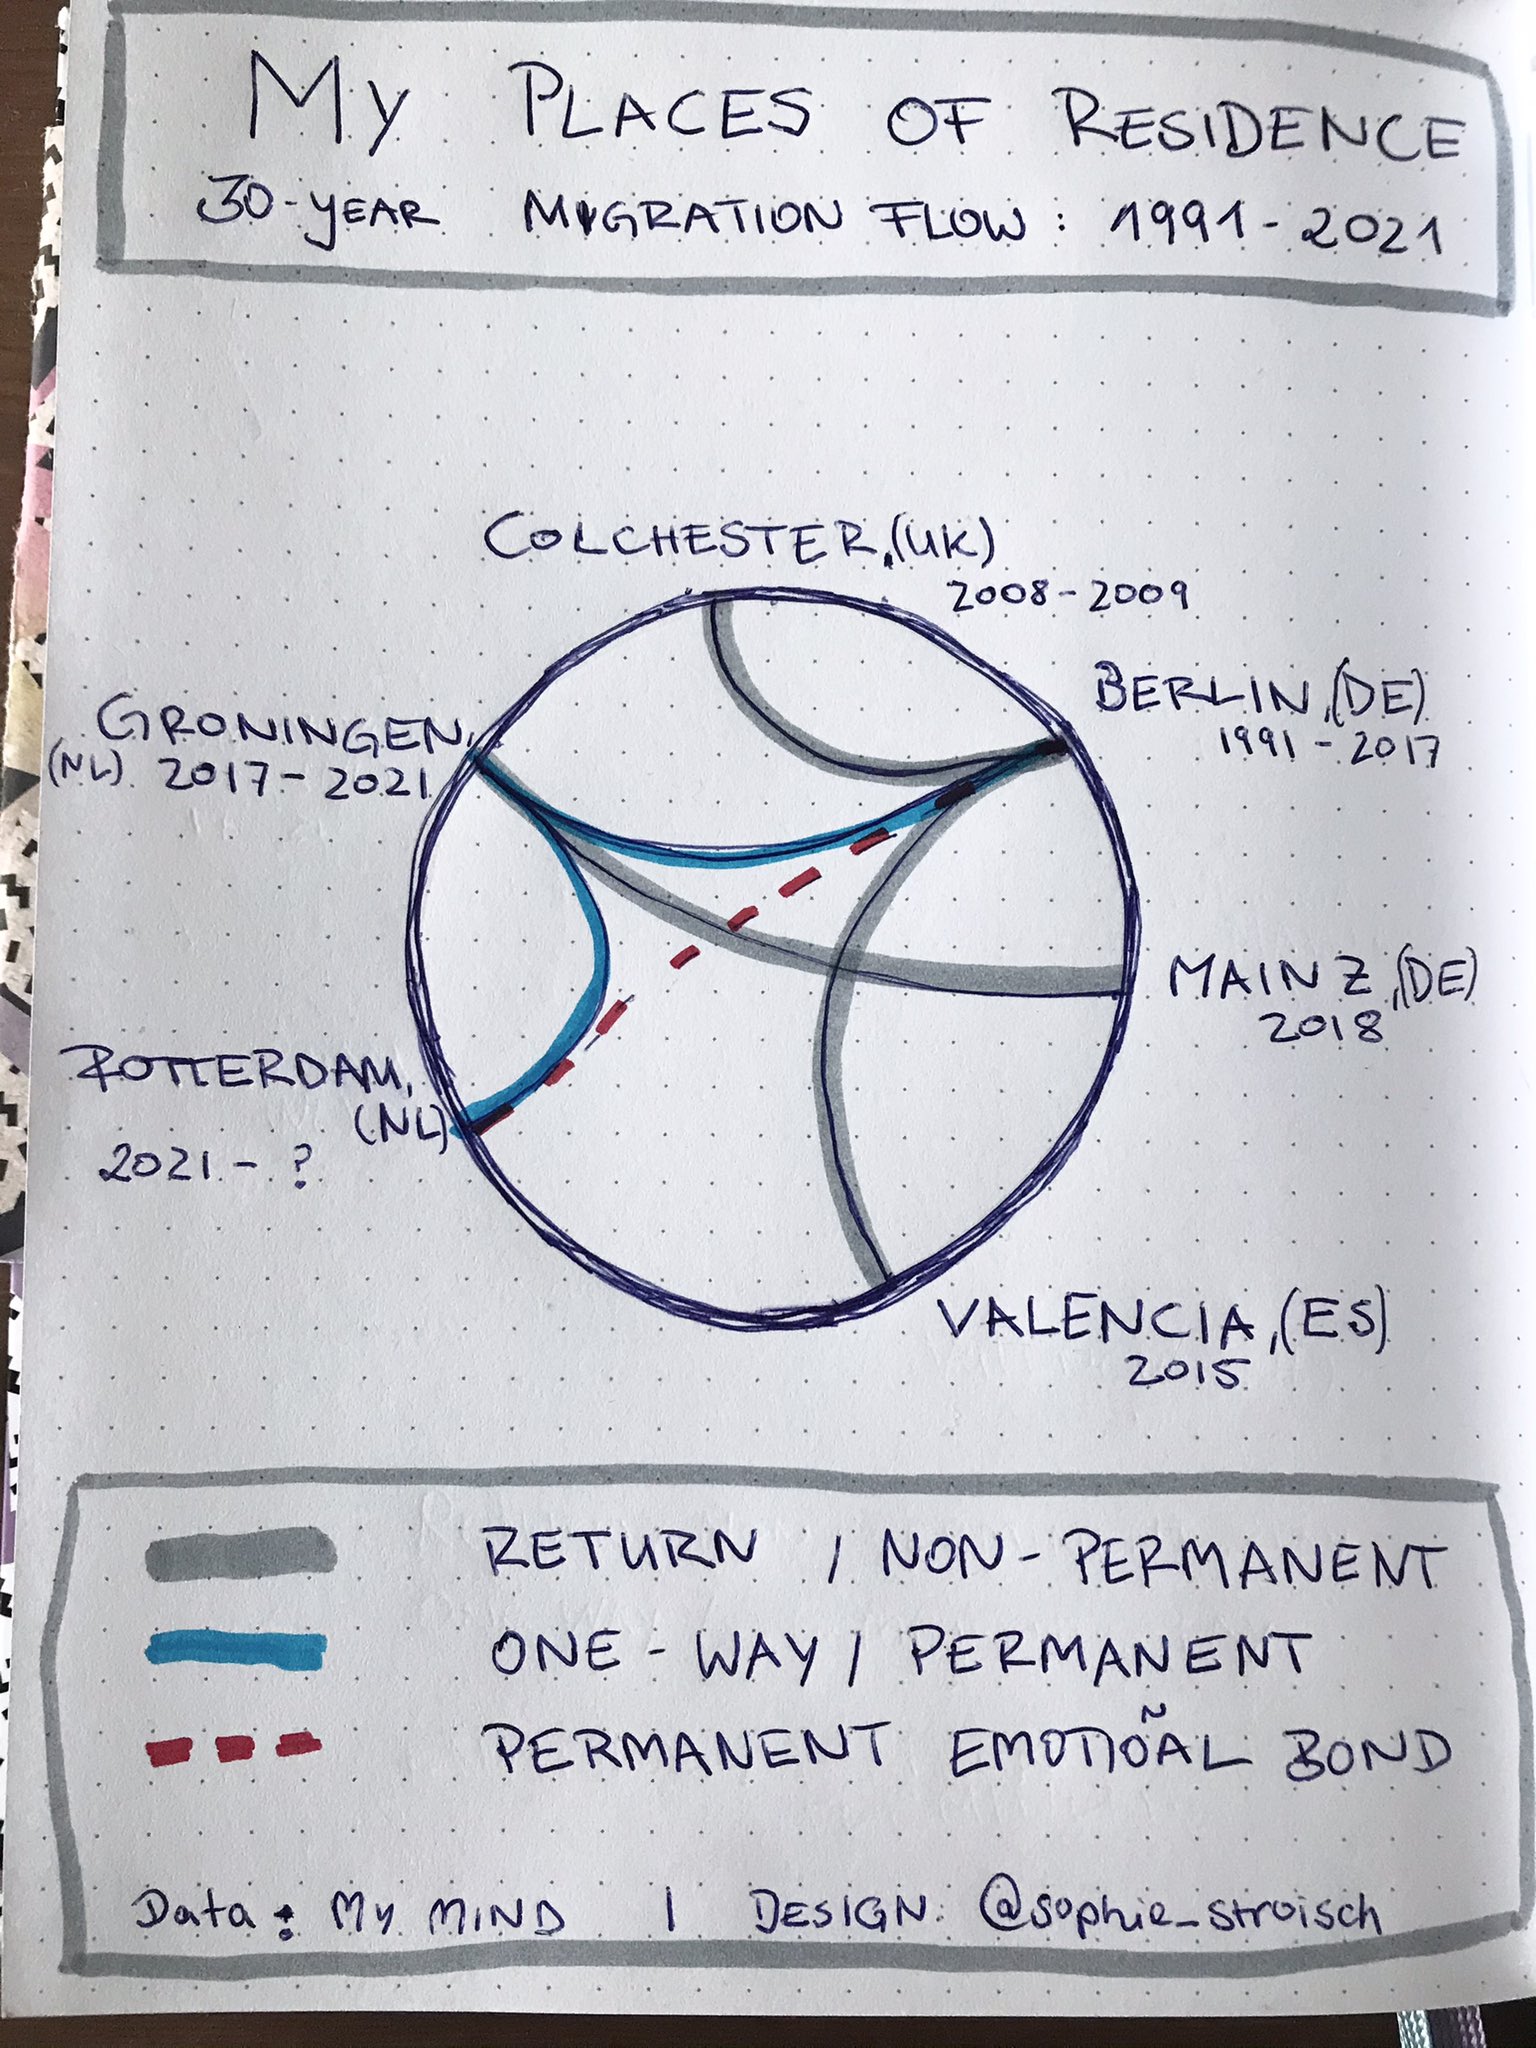 My PLACES OF RESIDENCE
30-YEAR MIGRATION FLOW: 1991-2021
COLCHESTER, (UK)
2008-2009
BERLIN, (DE)
1991-2017
GRONINGEN,
(NL) 2017-2021
MAINZ, (DE)
2018
ROTTERDAM,
(NL)
2021-?
VALENCIA, (ES)
2015
RETURN / NON-PERMANENT
ONE-WAY / PERMANENT
PERMANENT EMOTIOÑAL BOND
Data: My MIND | DESIGN: @sophie_stroisch